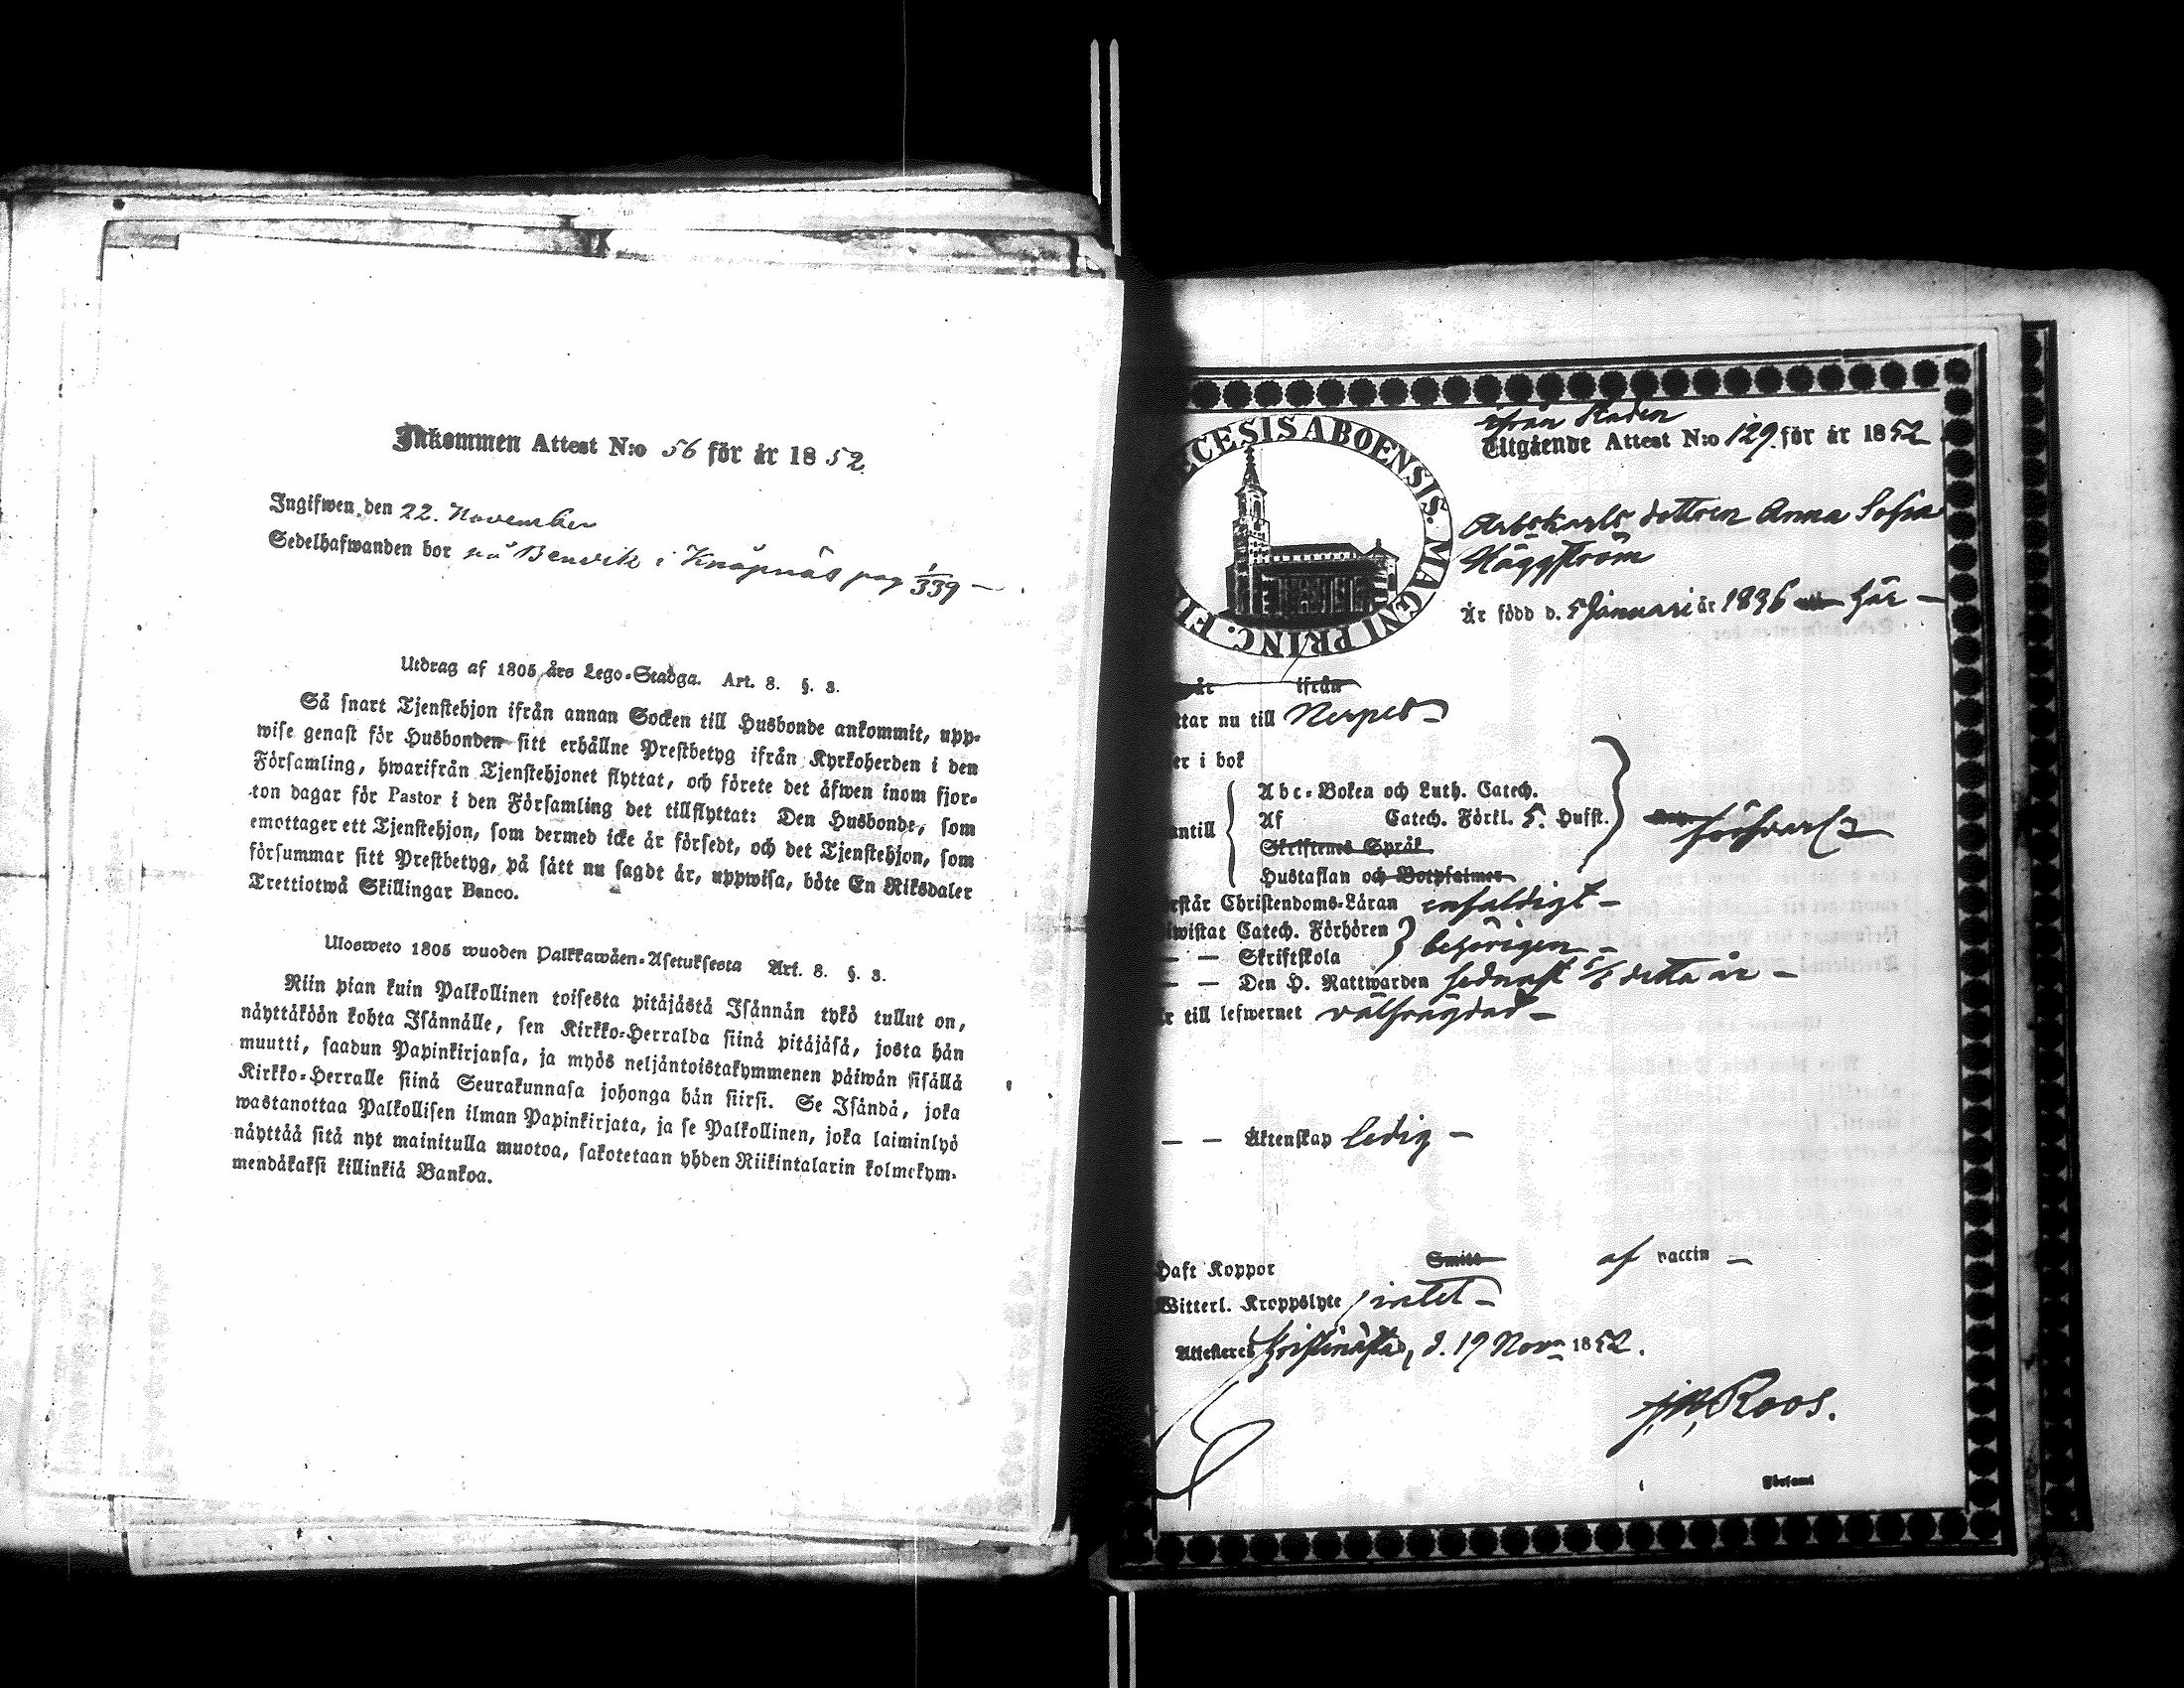 Inkommen Attest N:o 56 för år 1852
Ingifwen den 22. November
Sedelhafwanden bor på Benvik i Knåpnäs pag 1/339 —
Utdrag af 1805 års Lego-Stadga. Art. 8. §. 3.
Så snart Tjenstehjon ifrån annan Socken till Husbonde ankommit, upp-
wise genast för Husbonden sitt erhållne Prestbetyg ifrån Kyrkoherden i den
Församling, hwarifrån Tjenstehjonet flyttat, och förete det äfwen inom fjor-
ton dagar för Pastor i den Församling det tillflyttat: Den Husbonde, som
emottager ett Tjenstehjon, som dermed icke är försedt, och det Tjenstehjon, som
försummar sitt Prestbetyg, på sätt nu sagdt är, uppwisa, böte En Riksdaler
Trettiotwå Skillingar Banco.
Ulosweto 1805 wuoden Palkkawäen-Asetuksesta Art. 8. §. 3.
Niin pian kuin Palkollinen toisesta pitäjästä Isännän tykö tullut on,
näyttäköön kohta Isännälle, sen Kirkko-Herralda siinä pitäjäsä, josta hän
muutti, saadun Papinkirjansa, ja myös neljäntoistakymmenen päiwän sisällä
Kirkko-Herralle siinä Seurakunnasa johonga hän siirsi. Se Isändä, joka
wastanottaa Palkollisen ilman Papinkirjata, ja se Palkollinen, joka laiminlyö
näyttää sitä nyt mainitulla muotoa, sakotetaan yhden Riikintalarin kolmekym-
mendäkaksi killinkiä Bankoa.
CESIS ABOENSIS. MAGNI PRINC. FI
ifrån Staden
Utgående Attest N:o 129. för år 1852
Arbskarls dottren Anna Sofia
Häggström
Är född d. 5 Januari år 1836 här —
år ifrån
ttar nu till Nerpes —
er i bok
Abc-Boken och Luth. Catech.
antill Af Catech. Förkl. 5. Husst. försvarl
Skriftenes Språk
Hustaflan och Botpsalmer
rstår Christendoms-Läran enfaldigt —
iwistat Catech. Förhören } behörigen —
— — Skriftskola
— — Den H. Nattwarden sednast 5/6 detta år —
r till lefwernet välfrägdad —
— — Äktenskap ledig —
Haft Koppor Smitt af vaccin —
Witterl. Kroppslyte intet —
Attesteres Kristinestad, d. 19 Nov. 1852.
Roos.
Församl